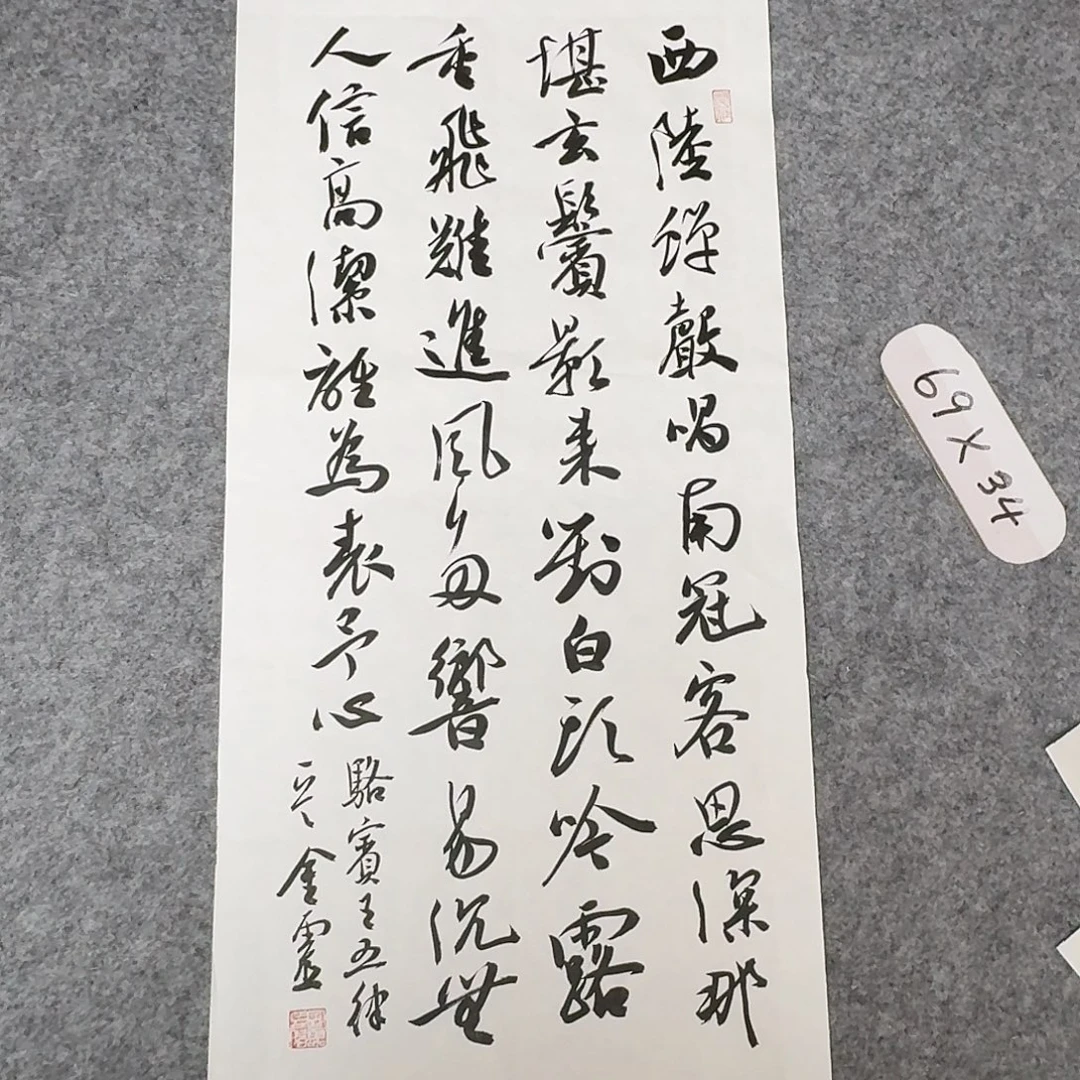 西陸蟬聲唱南冠客思深那
堪玄鬢影来對白頭吟露
重飛難進風多響易沉無
人信高潔誰為表予心
駱賓王五律
金靈
69×34